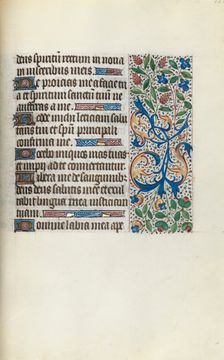 deus spiritum rectum in noua
in uisceribus meis.
Ne proicias me a facie tu
a et spiritum sanctum tuum ne
auferas a me.
Redde michi leticiam saluta
ris tui et spu principali
confirma me.
Docebo iniquos uias tuas
et impii ad te conuertentur
Libera me de sanguinib
deus deus salutis mee et exul
tabit lingua mea iusticiam
tuam.
Domine labia mea ape